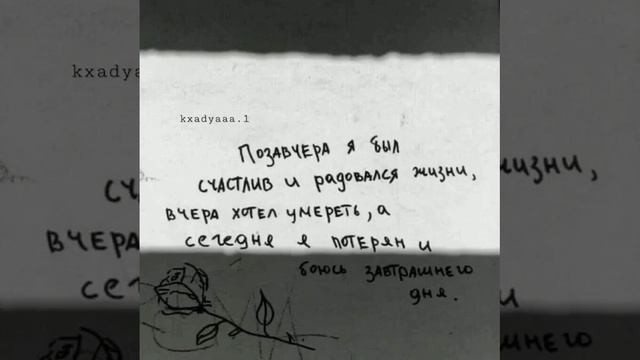 kxadyaaa.1
kxadyaaa.1
Позавчера я был
счастлив и радовался жизни,
вчера хотел умереть, а
сегедня я потерян и
боюсь завтрашнего
дня.